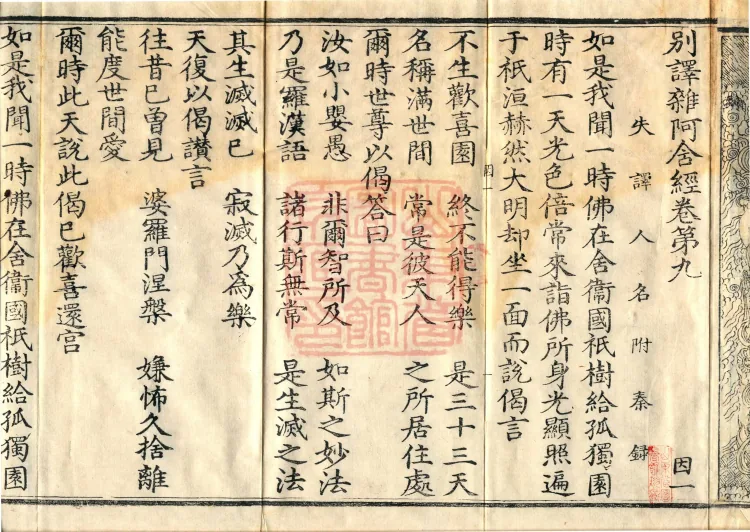 別譯雜阿舍經卷第九 因一
失譯人名附秦録
如是我聞一時佛在舍衞國祇樹給孤獨園
時有一天光色倍常來詣佛所身光顯照遍
于祇洹赫然大明却坐一面而説偈言
不生歡喜園 終不能得樂 是三十三天
名稱滿世間 常是彼天人 之所居住處
四一
爾時世尊以偈答曰
汝如小嬰愚 非爾智所及 如斯之妙法
乃是羅漢語 諸行斯無常 是生滅之法
其生滅滅已 寂滅乃爲樂
天復以偈讃言
往昔已曾見 婆羅門涅槃 嫌怖久捨離
能度世間愛
爾時此天説此偈已歡喜還宫
如是我聞一時佛在舍衞國祇樹給孤獨園